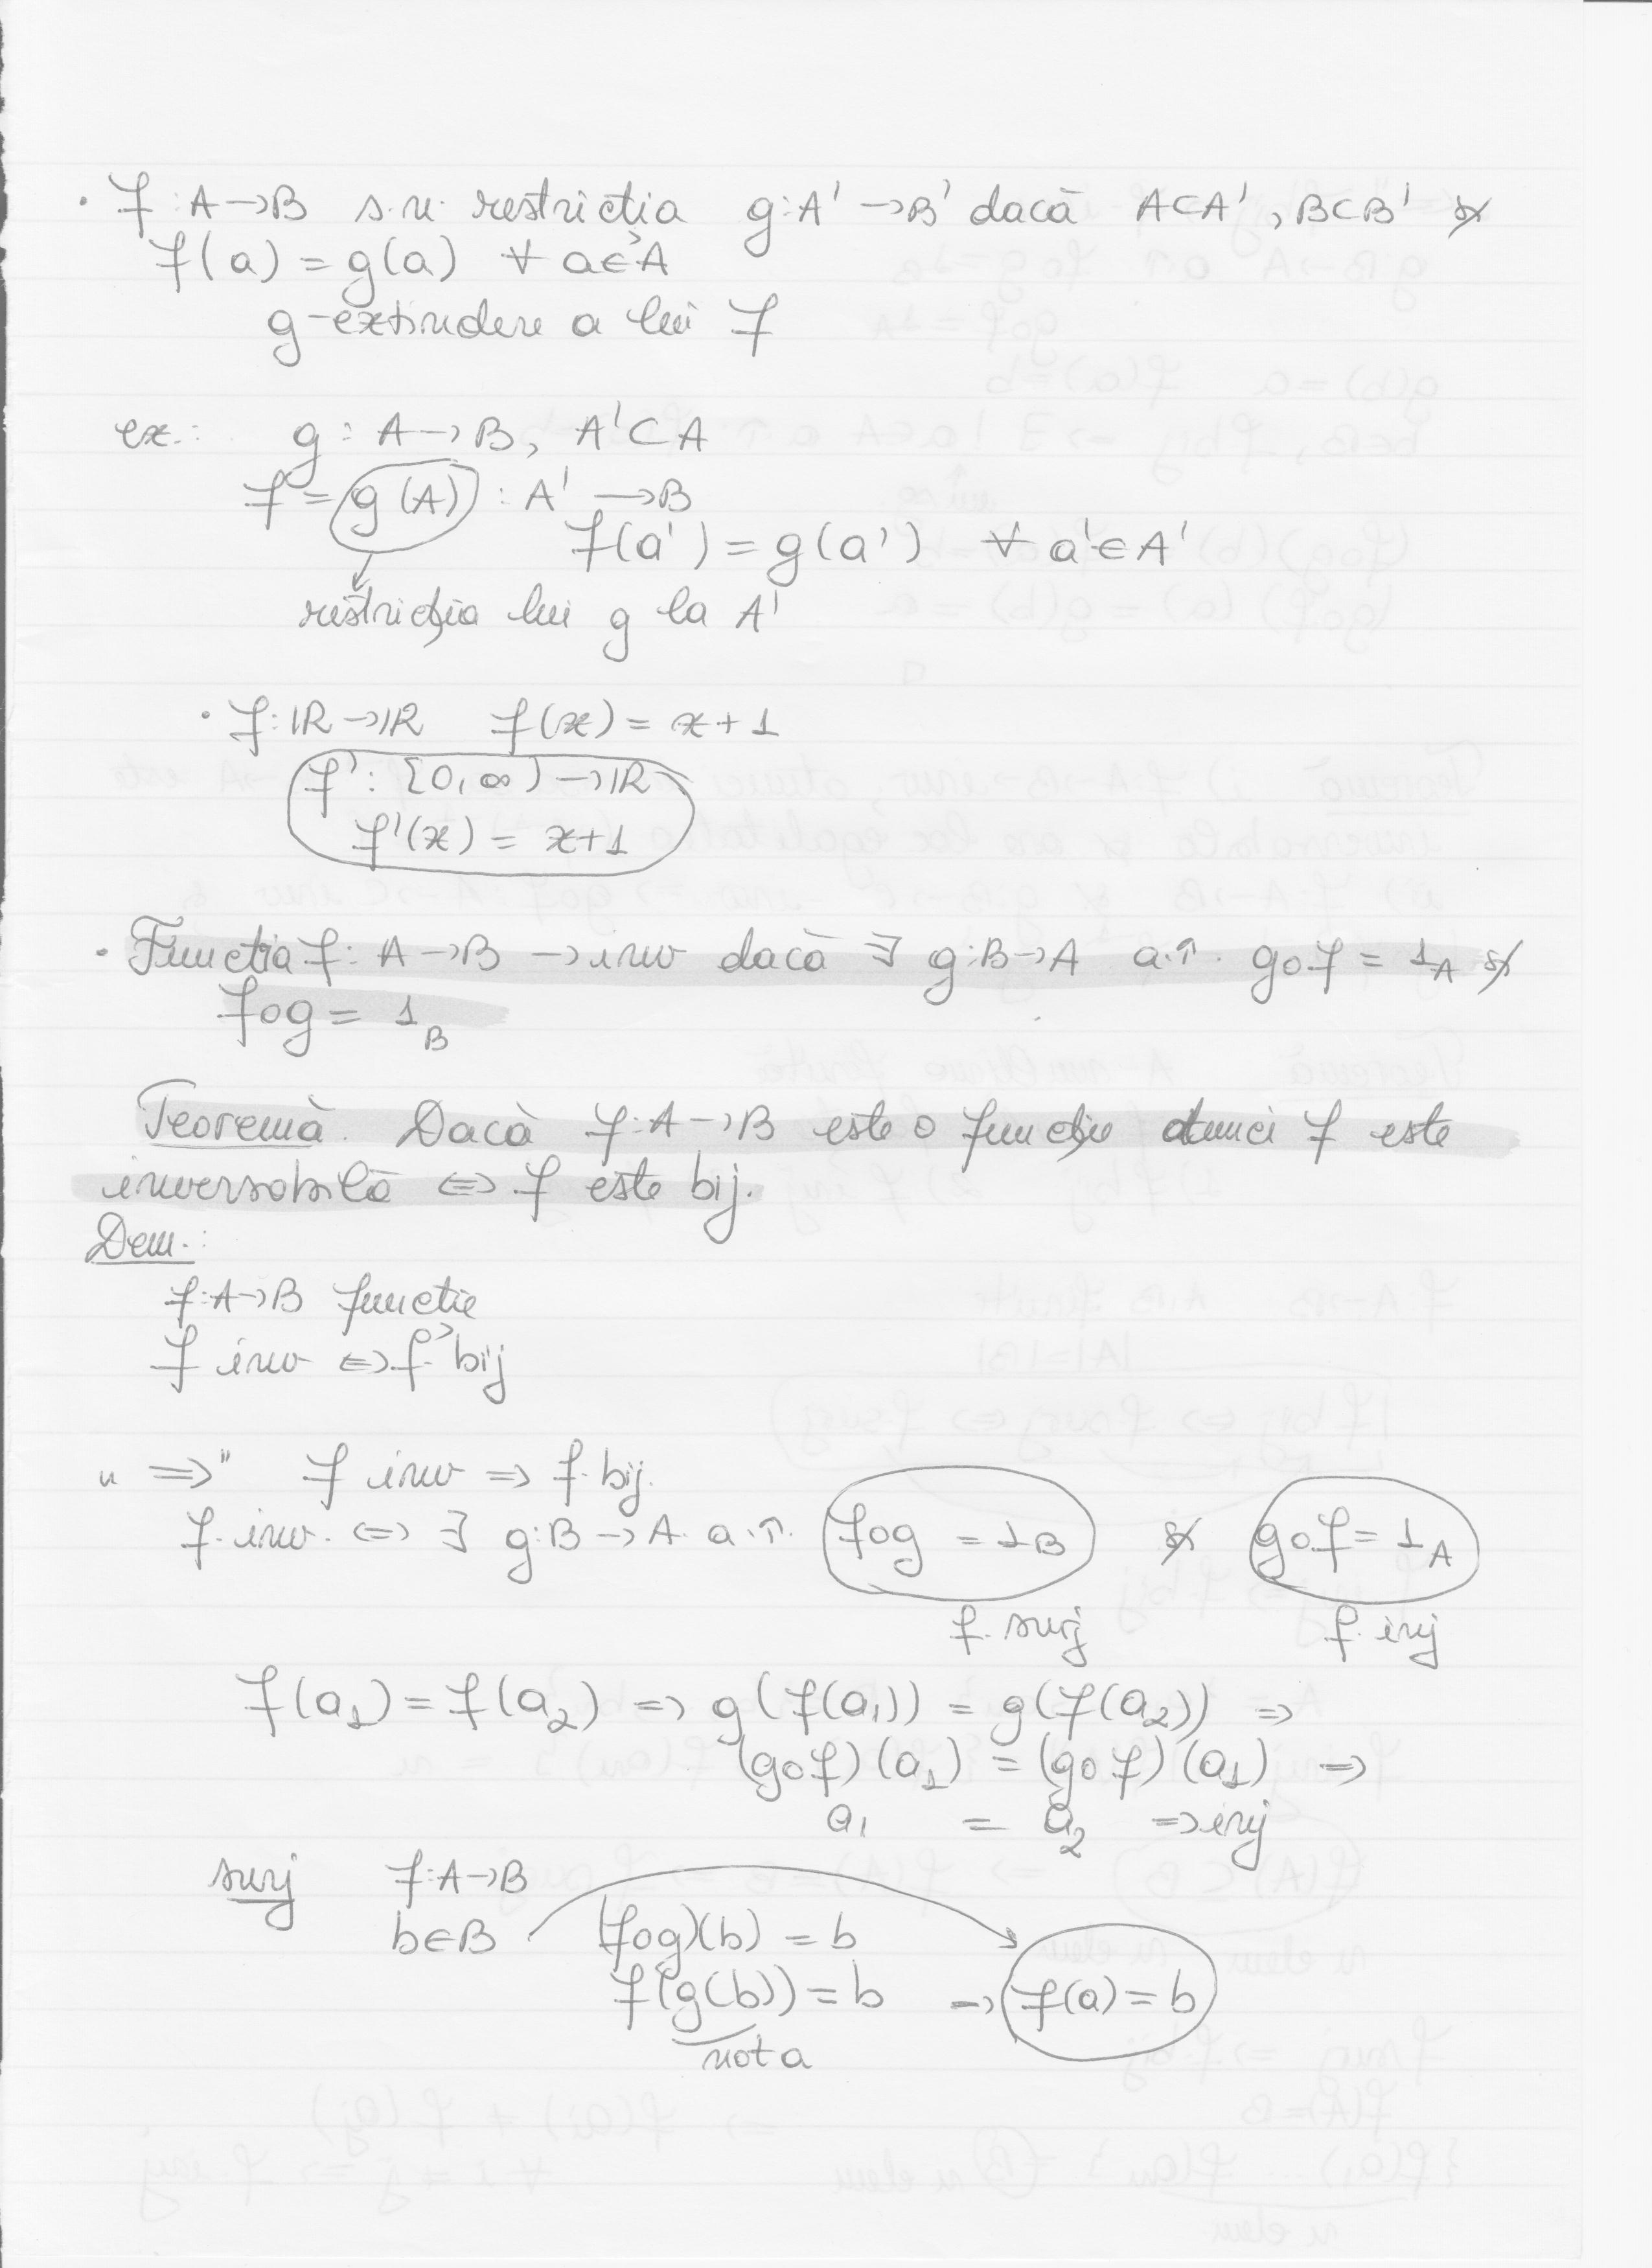 · f: A→B s.n. restrictia g: A'→B' dacă A⊂A', B⊂B' și
f(a) = g(a) ∀ a∈A
g-extindere a lui f
ex.: g: A→B, A'⊂A
f = g(A) : A' →B
f(a') = g(a') ∀ a'∈A'
restricția lui g la A'
· f: IR→IR f(x) = x+1
f': [0,∞) →IR
f'(x) = x+1
· Functia f: A→B → inv dacă ∃ g: B→A a.î. gof = 1_A și
fog = 1_B
Teoremă. Dacă f: A→B este o funcție atunci f este
inversabilă ⇔ f este bij.
Dem.:
f: A→B functie
f inv ⇔ f bij
„⇒" f inv ⇒ f. bij.
f. inv. ⇔ ∃ g: B→A. a.î. fog = 1_B și gof = 1_A
f. surj f. inj
f(a₁) = f(a₂) ⇒ g(f(a₁)) = g(f(a₂)) ⇒
(gof)(a₁) = (gof)(a₁) ⇒
a₁ = a₂ ⇒ inj
surj f: A→B
b∈B (fog)(b) = b
f(g(b)) = b → f(a) = b
not a